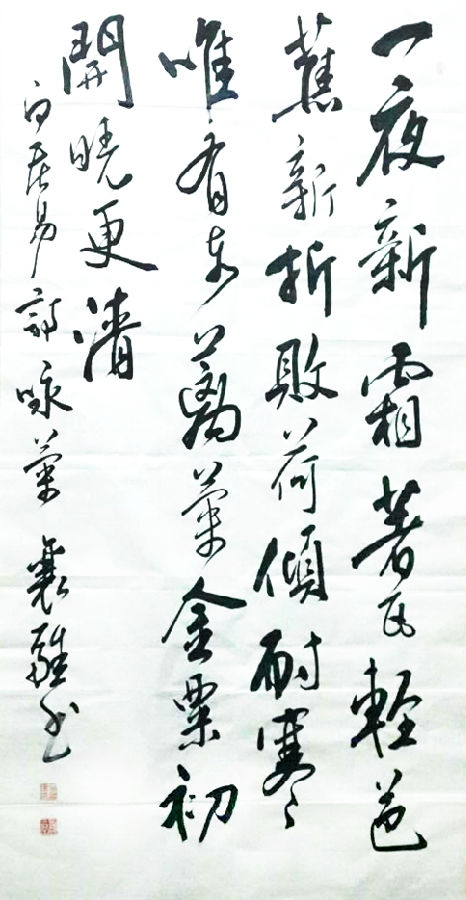 一夜新霜著瓦輕芭
蕉新折敗荷傾耐寒
唯有東籬菊金粟初
開曉更清
白居易詩咏菊